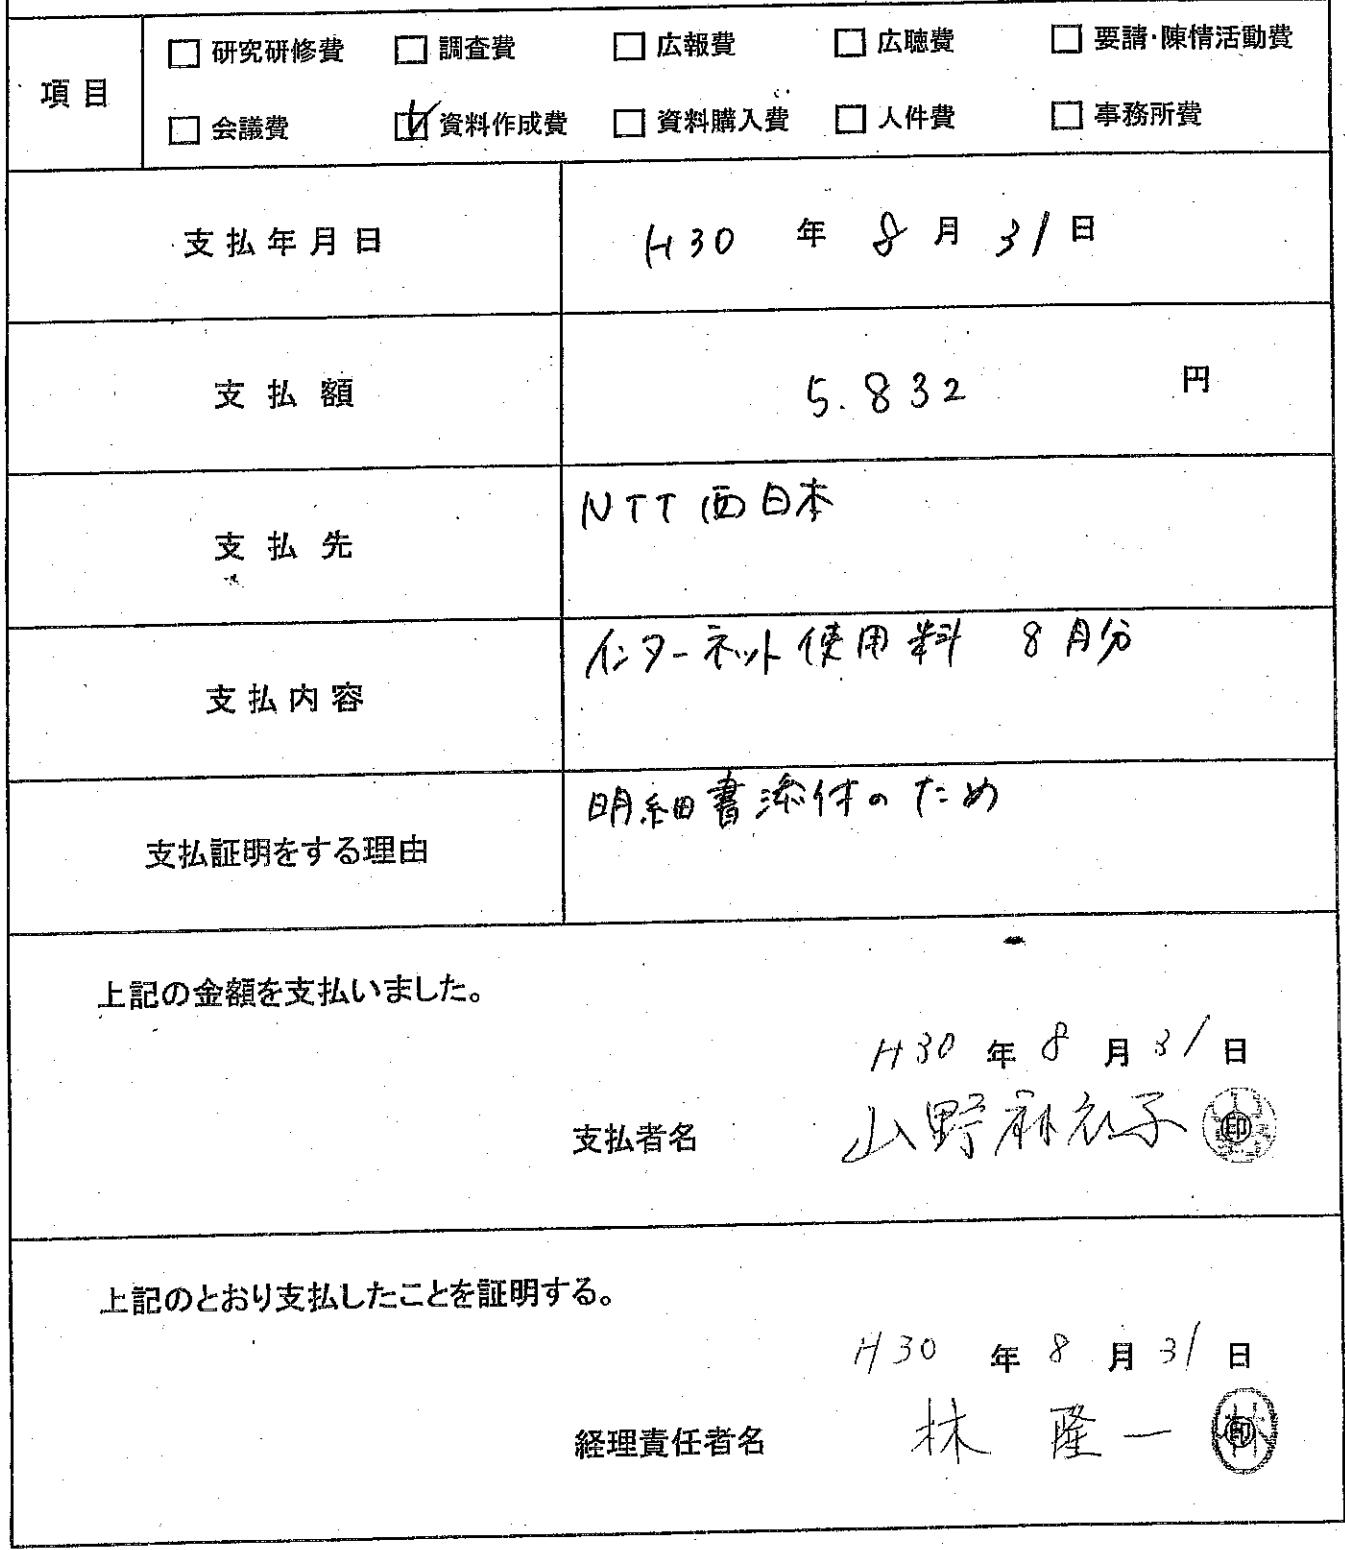 項目
□ 研究研修費 □ 調査費 □ 広報費 □ 広聴費 □ 要請・陳情活動費
□ 会議費 ☑ 資料作成費 □ 資料購入費 □ 人件費 □ 事務所費
支払年月日 H30 年 8 月 31 日
支払額 5.832 円
支払先 NTT西日本
支払内容 インターネット使用料 8月分
支払証明をする理由 明細書添付のため
上記の金額を支払いました。
H30 年 8 月 31 日
支払者名 山野麻衣子 印
上記のとおり支払したことを証明する。
H30 年 8 月 31 日
経理責任者名 林 隆一 印